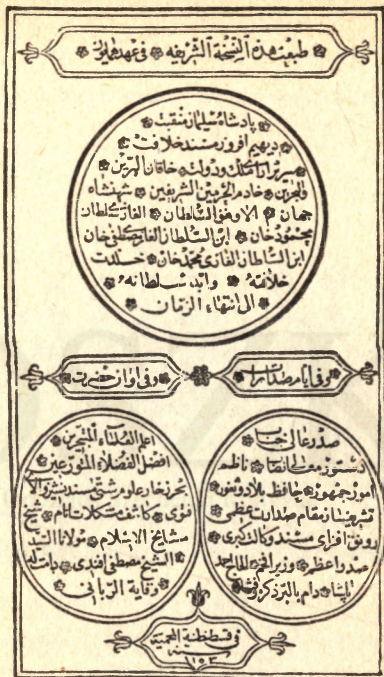 طبعت هذه النسخة الشريفه في عهد همايون
پادشاه سليمان منقبت
ديهيم افروز مسند خلافت
سرير آراى ملك ودولت خاقان البرين
والبحرين خادم الحرمين الشريفين شهنشاه
جهان الاوهو السلطان الغازى سلطان
محمود خان ابن السلطان الغازى مصطفى خان
ابن السلطان الغازى محمد خان خلدت
خلافته وابد سلطانه
الى انتهاء الزمان
وفى ايام صدارت
وفى اوان حضرت
صدر عالى جناب
دستور معلى القاب ناظم
امور جمهور حافظ بلاد وثغور
تشريفساز مقام صدارت عظمى
رونق افزاى مسند وكالت كبرى
صدر اعظم وزير افخم الحاج احمد
پاشا دام بالبر
اعلم العلماء المتبحرين
افضل الفضلاء المتورعين
بحر زخار علوم شتى مسند نشين والا
فتوى كاشف مشكلات انام شيخ
مشايخ الاسلام مولانا السيد
الشيخ مصطفى افندى دامت له
وقاية الربانى
فى قسطنطنية المحمية
سنة
١١٥٣